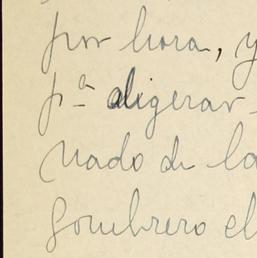 por hora, y
pª aligerar
nado de la
Sombrero el